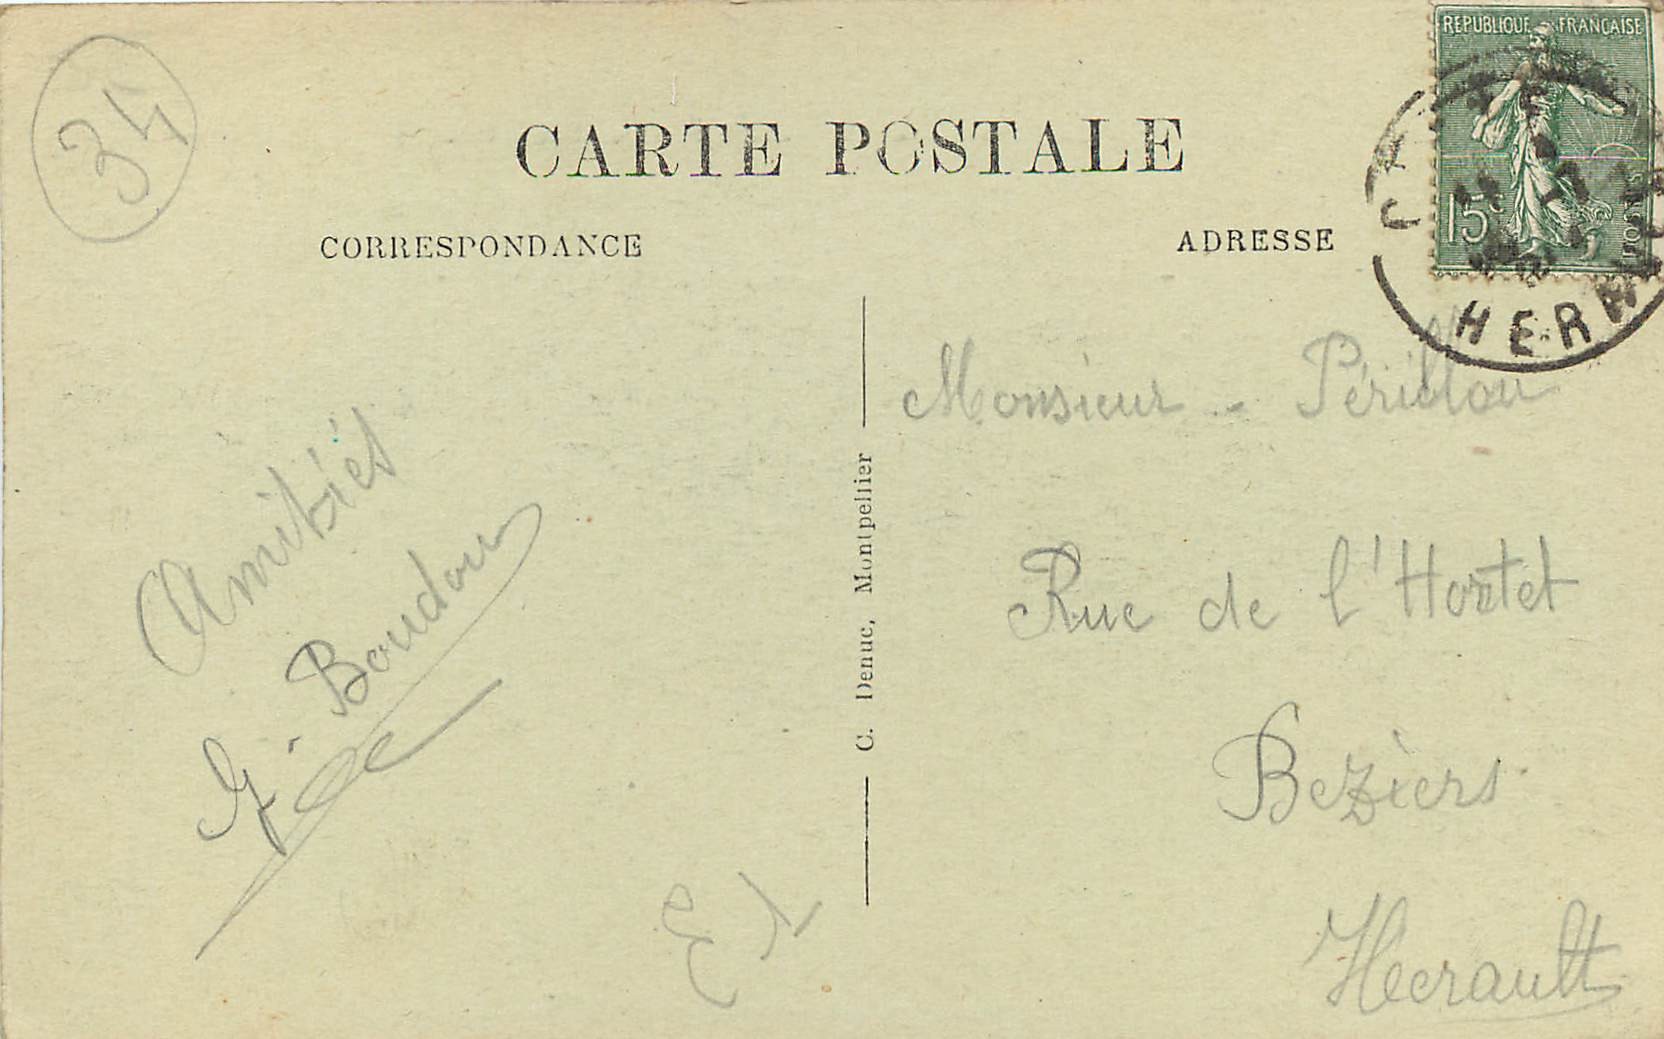 34
REPUBLIQUE FRANÇAISE
15c
POSTES
HERAULT
CARTE POSTALE
CORRESPONDANCE
ADRESSE
Amitiés
G. Boudou
C. Denuc, Montpellier
Monsieur - Périllou
Rue de l'Hortet
Bezièrs
Hérault